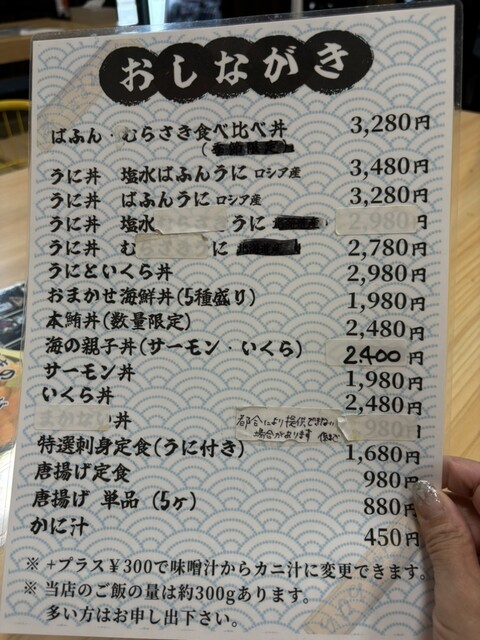 おしながき
ばふん・むらさき食べ比べ丼 3,280円
うに丼 塩水ばふんうに ロシア産 3,480円
うに丼 ばふんうに ロシア産 3,280円
うに丼 塩水むらさきうに 2,980円
うに丼 むらさきうに 2,780円
うにといくら丼 2,980円
おまかせ海鮮丼(5種盛り) 1,980円
本鮪丼(数量限定) 2,480円
海の親子丼(サーモン・いくら) 2,400円
サーモン丼 1,980円
いくら丼 2,480円
まかない丼 980円
都合により提供できない
場合があります
特選刺身定食(うに付き) 1,680円
唐揚げ定食 980円
唐揚げ 単品 (5ヶ) 880円
かに汁 450円
※ +プラス¥300で味噌汁からカニ汁に変更できます。
※ 当店のご飯の量は約300gあります。
多い方はお申し出下さい。